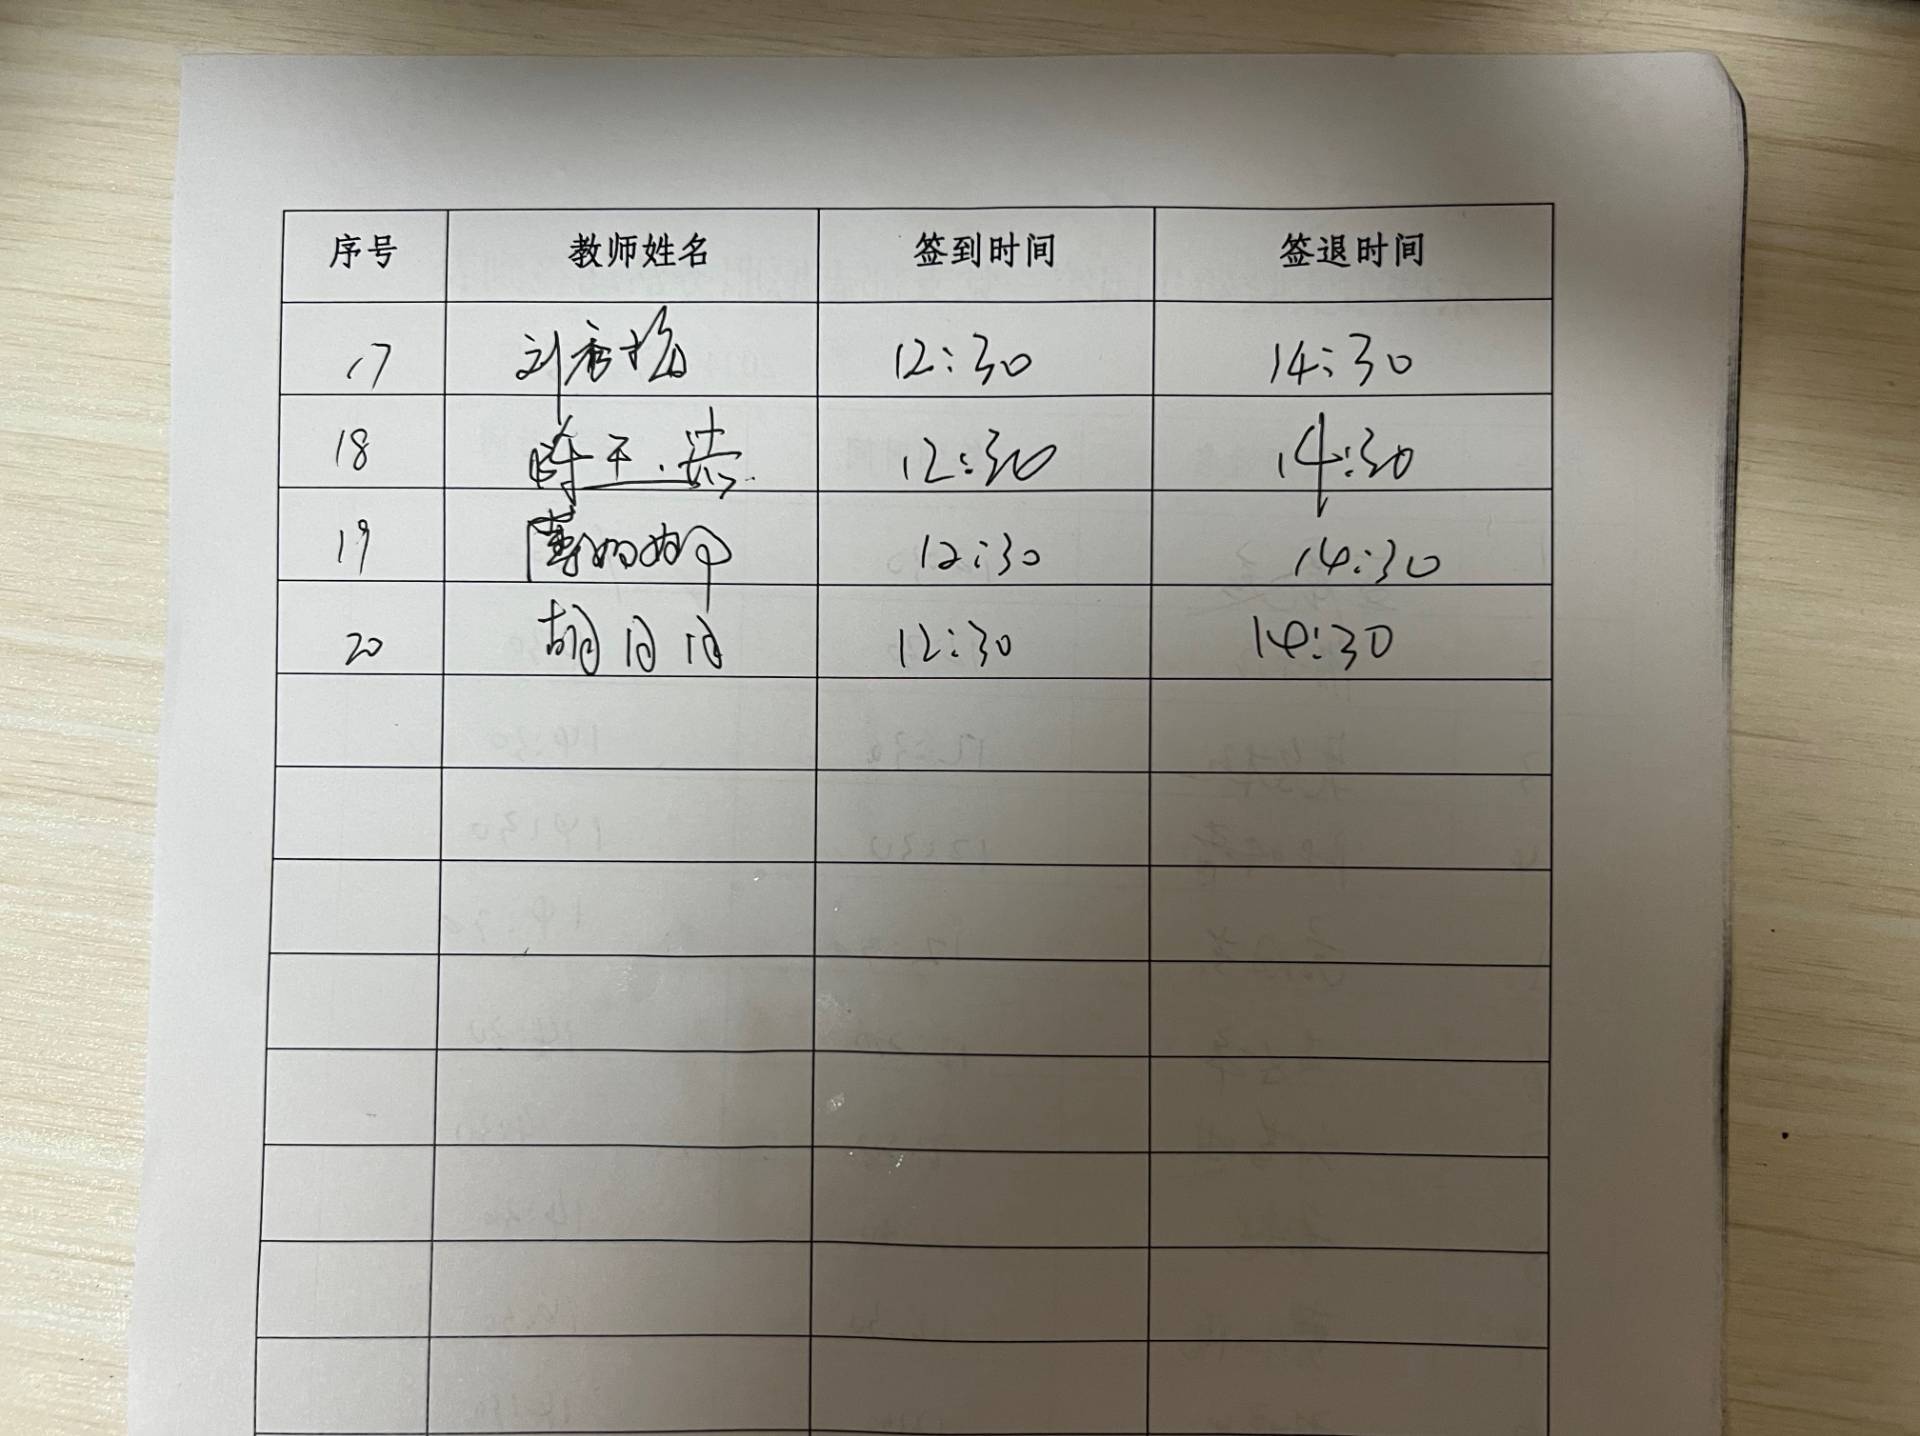 序号 教师姓名 签到时间 签退时间
17 刘秀梅 12:30 14:30
18 陈 12:30 14:30
19 12:30 14:30
20 胡月月 12:30 14:30